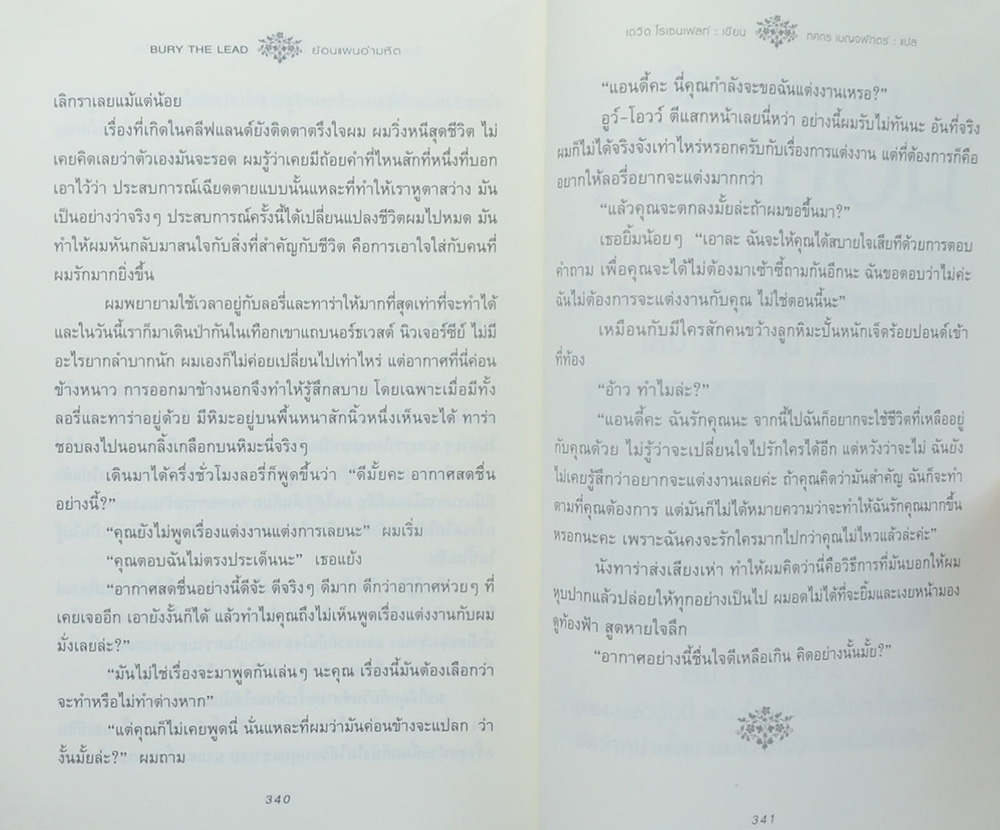 BURY THE LEAD ย้อนแผนอำมหิต
เลิกราเลยแม้แต่น้อย
เรื่องที่เกิดในคลีฟแลนด์ยังติดตาตรึงใจผม ผมวิ่งหนีสุดชีวิต ไม่
เคยคิดเลยว่าตัวเองมันจะรอด ผมรู้ว่าเคยมีถ้อยคำที่ไหนสักที่หนึ่งที่บอก
เอาไว้ว่า ประสบการณ์เฉียดตายแบบนั้นแหละที่ทำให้เราหูตาสว่าง มัน
เป็นอย่างว่าจริงๆ ประสบการณ์ครั้งนี้ได้เปลี่ยนแปลงชีวิตผมไปหมด มัน
ทำให้ผมหันกลับมาสนใจกับสิ่งที่สำคัญกับชีวิต คือการเอาใจใส่กับคนที่
ผมรักมากยิ่งขึ้น
ผมพยายามใช้เวลาอยู่กับลอรี่และทาร่าให้มากที่สุดเท่าที่จะทำได้
และในวันนี้เราก็มาเดินป่ากันในเทือกเขาแถบนอร์ธเวสต์ นิวเจอร์ซีย์ ไม่มี
อะไรยากลำบากนัก ผมเองก็ไม่ค่อยเปลี่ยนไปเท่าไหร่ แต่อากาศที่นี่ค่อน
ข้างหนาว การออกมาข้างนอกจึงทำให้รู้สึกสบาย โดยเฉพาะเมื่อมีทั้ง
ลอรี่และทาร่าอยู่ด้วย มีหิมะอยู่บนพื้นหนาสักนิ้วหนึ่งเห็นจะได้ ทาร่า
ชอบลงไปนอนกลิ้งเกลือกบนหิมะนี่จริงๆ
เดินมาได้ครึ่งชั่วโมงลอรี่ก็พูดขึ้นว่า “ดีมั้ยคะ อากาศสดชื่น
อย่างนี้?”
“คุณยังไม่พูดเรื่องแต่งงานแต่งการเลยนะ” ผมเริ่ม
“คุณตอบฉันไม่ตรงประเด็นนะ” เธอแย้ง
“อากาศสดชื่นอย่างนี้ดีจ้ะ ดีจริงๆ ดีมาก ดีกว่าอากาศห่วยๆ ที่
เคยเจออีก เอายังงั้นก็ได้ แล้วทำไมคุณถึงไม่เห็นพูดเรื่องแต่งงานกับผม
มั่งเลยล่ะ?”
“มันไม่ใช่เรื่องจะมาพูดกันเล่นๆ นะคุณ เรื่องนี้มันต้องเลือกว่า
จะทำหรือไม่ทำต่างหาก”
“แต่คุณก็ไม่เคยพูดนี่ นั่นแหละที่ผมว่ามันค่อนข้างจะแปลก ว่า
งั้นมั้ยล่ะ?” ผมถาม
340
เดวิด โรเซนเฟลท์ : เขียน ทศกร เบญจพักตร์ : แปล
“แอนดี้คะ นี่คุณกำลังจะขอฉันแต่งงานเหรอ?”
อูว์-โอวว์ ตีแสกหน้าเลยนี่หว่า อย่างนี้ผมรับไม่ทันนะ อันที่จริง
ผมก็ไม่ได้จริงจังเท่าไหร่หรอกครับกับเรื่องการแต่งงาน แต่ที่ต้องการก็คือ
อยากให้ลอรี่อยากจะแต่งมากกว่า
“แล้วคุณจะตกลงมั้ยล่ะถ้าผมขอขึ้นมา?”
เธอยิ้มน้อยๆ “เอาละ ฉันจะให้คุณได้สบายใจเสียทีด้วยการตอบ
คำถาม เพื่อคุณจะได้ไม่ต้องมาเซ้าซี้ถามกันอีกนะ ฉันขอตอบว่าไม่ค่ะ
ฉันไม่ต้องการจะแต่งงานกับคุณ ไม่ใช่ตอนนี้นะ”
เหมือนกับมีใครสักคนขว้างลูกหิมะปั้นหนักเจ็ดร้อยปอนด์เข้า
ที่ท้อง
“อ้าว ทำไมล่ะ?”
“แอนดี้คะ ฉันรักคุณนะ จากนี้ไปฉันก็อยากจะใช้ชีวิตที่เหลืออยู่
กับคุณด้วย ไม่รู้ว่าจะเปลี่ยนใจไปรักใครได้อีก แต่หวังว่าจะไม่ ฉันยัง
ไม่เคยรู้สึกว่าอยากจะแต่งงานเลยค่ะ ถ้าคุณคิดว่ามันสำคัญ ฉันก็จะทำ
ตามที่คุณต้องการ แต่มันก็ไม่ได้หมายความว่าจะทำให้ฉันรักคุณมากขึ้น
หรอกนะคะ เพราะฉันคงจะรักใครมากไปกว่าคุณไม่ไหวแล้วล่ะค่ะ”
นังทาร่าส่งเสียงเห่า ทำให้ผมคิดว่านี่คือวิธีการที่มันบอกให้ผม
หุบปากแล้วปล่อยให้ทุกอย่างเป็นไป ผมอดไม่ได้ที่จะยิ้มและเงยหน้ามอง
ดูท้องฟ้า สูดหายใจลึก
“อากาศอย่างนี้ชื่นใจดีเหลือเกิน คิดอย่างนั้นมั้ย?”
341